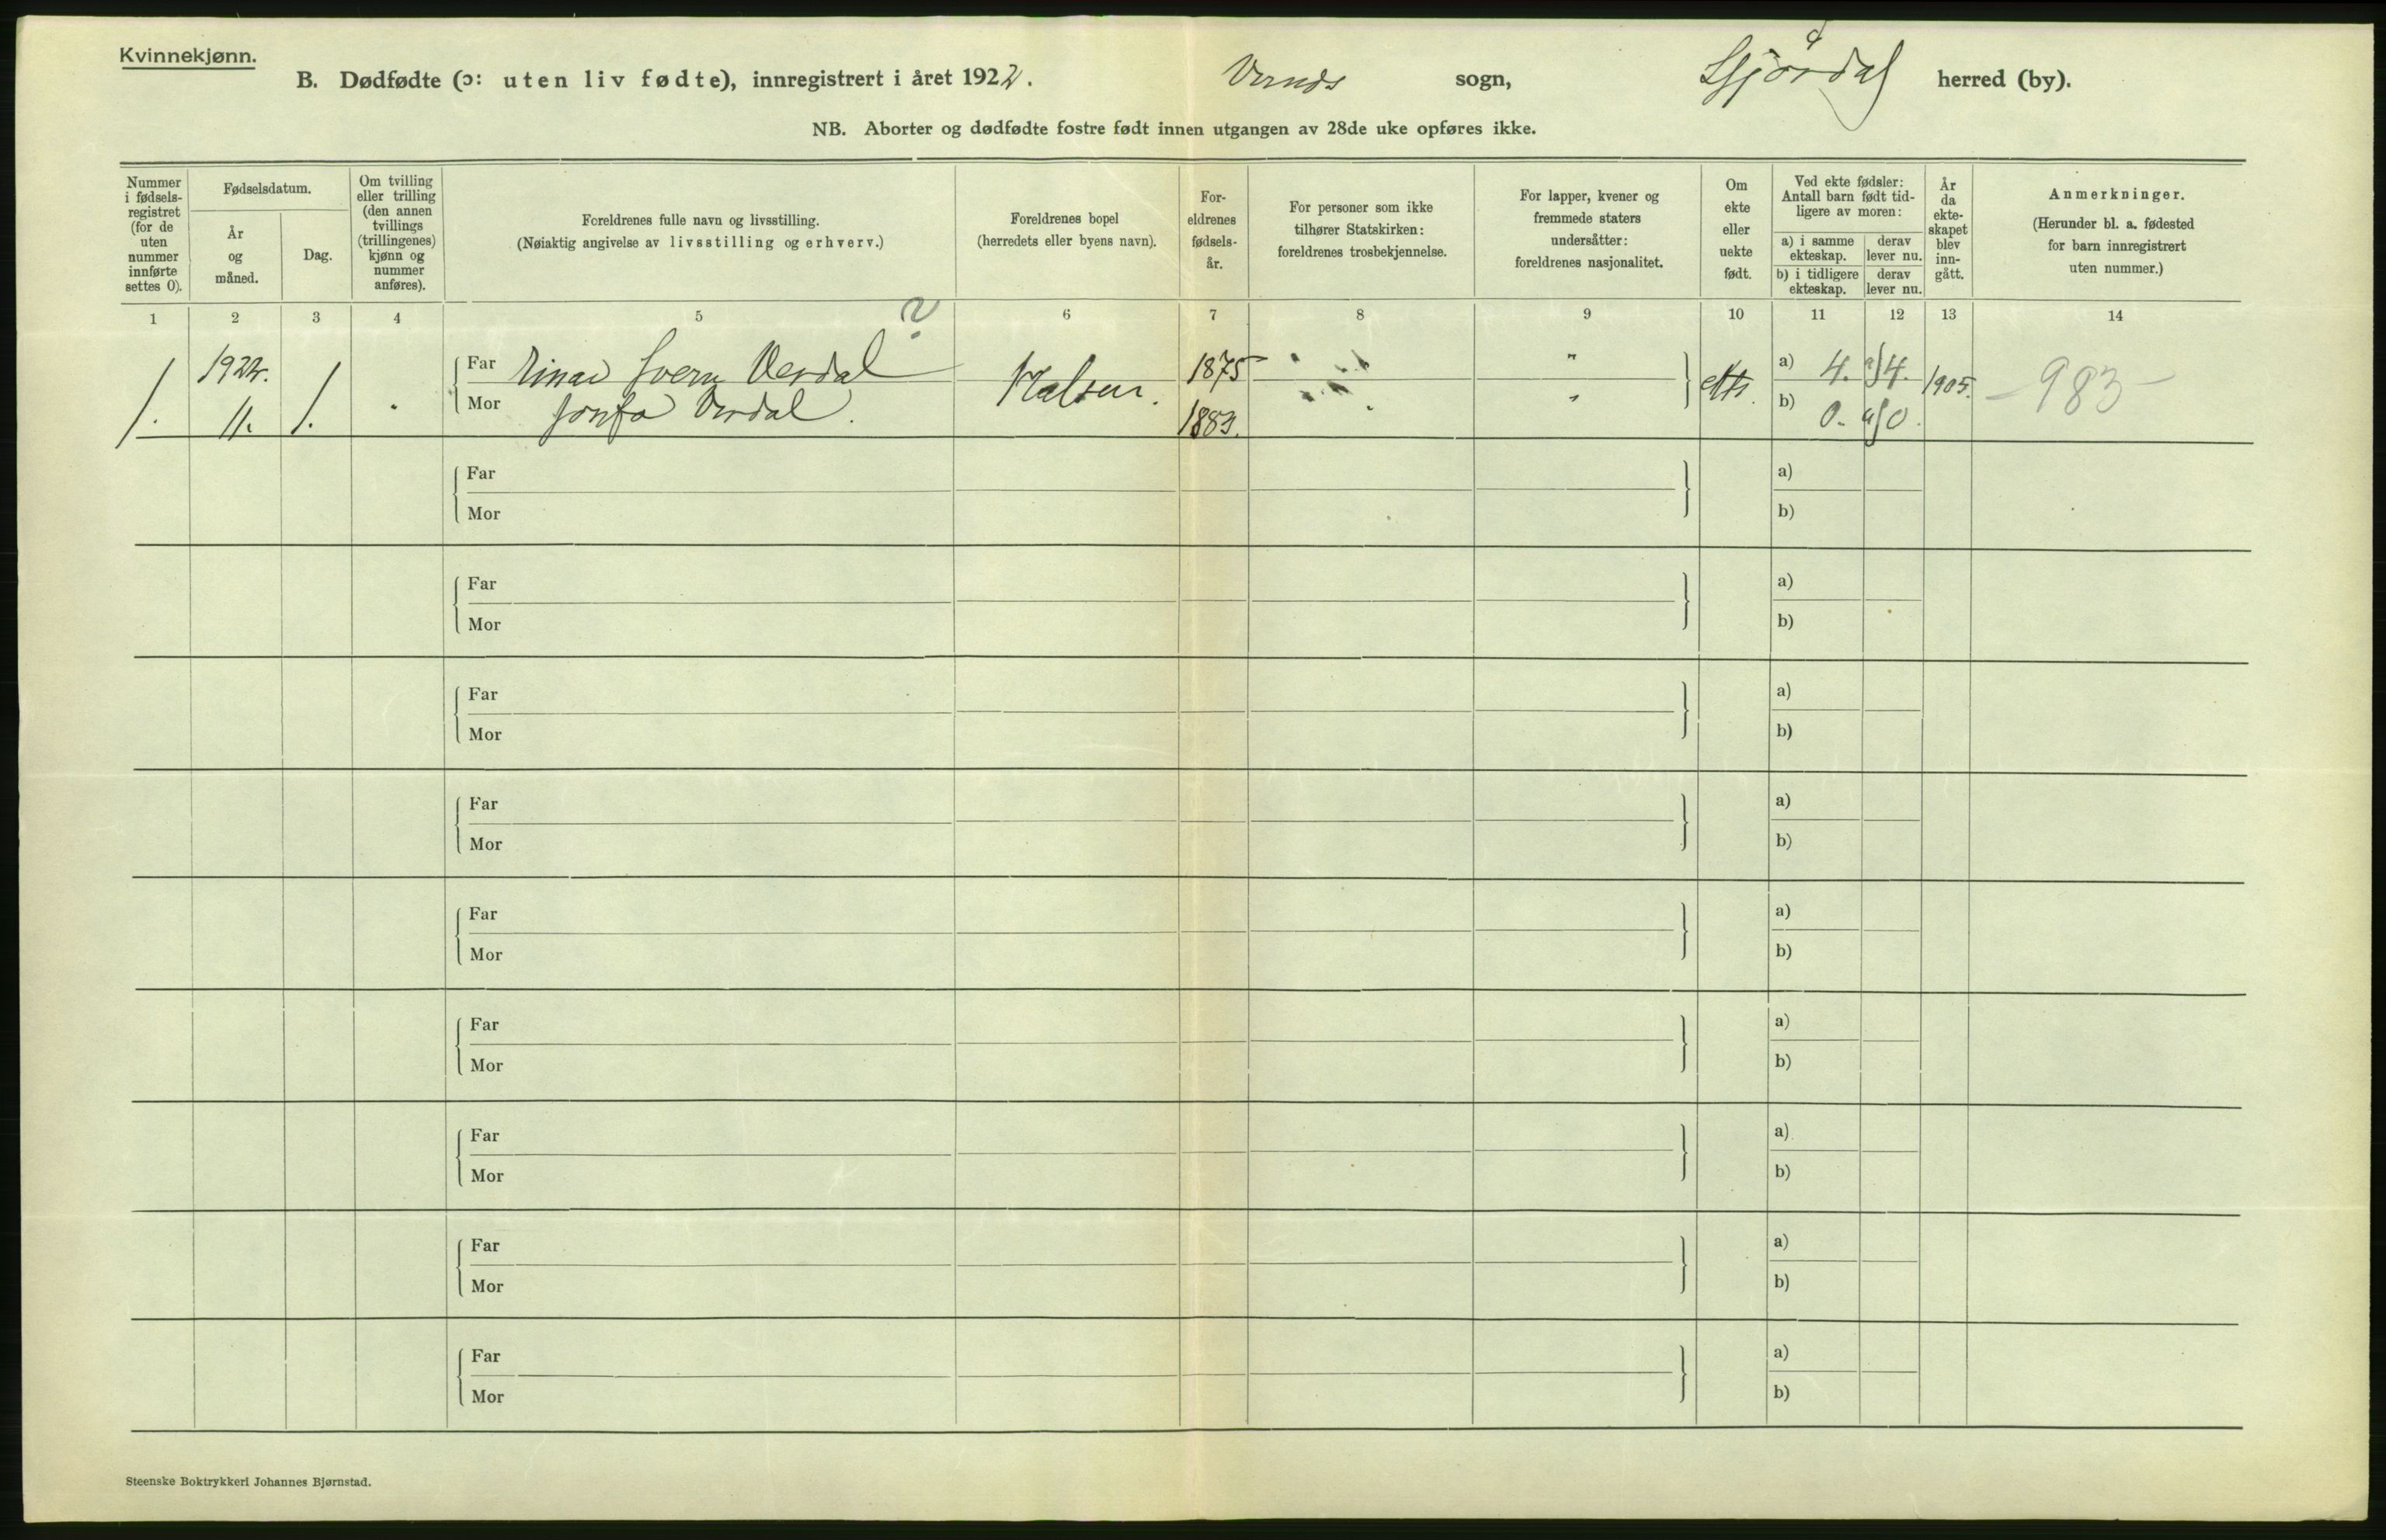 Kvinnekjønn.
B. Dødfødte (ɔ: uten liv fødte), innregistrert i året 1922. Værnes sogn, Stjørdal herred (by).
NB. Aborter og dødfødte fostre født innen utgangen av 28de uke opføres ikke.
Nummer i fødsels-registret (for de uten nummer innførte settes 0).
Fødselsdatum.
År og måned.
Dag.
Om tvilling eller trilling (den annen tvillings (trillingenes) kjønn og nummer anføres).
Foreldrenes fulle navn og livsstilling.
(Nøiaktig angivelse av livsstilling og erhverv.)
Foreldrenes bopel
(herredets eller byens navn).
For-eldrenes fødsels-år.
For personer som ikke tilhører Statskirken: foreldrenes trosbekjennelse.
For lapper, kvener og fremmede staters undersåtter: foreldrenes nasjonalitet.
Om ekte eller uekte født.
Ved ekte fødsler: Antall barn født tid-ligere av moren:
a) i samme ekteskap.
derav lever nu.
b) i tidligere ekteskap.
derav lever nu.
År da ekte-skapet blev inn-gått.
Anmerkninger.
(Herunder bl. a. fødested for barn innregistrert uten nummer.)
1 2 3 4 5 ? 6 7 8 9 10 11 12 13 14
1. 1922. 11. 1. "
Far Einar Sverre Verdal Halsen. 1875 " " ekte a) 4. a) 4. 1905. 983
Mor Verdal. 1883. " " b) 0. 0.
Far a)
Mor b)
Far a)
Mor b)
Far a)
Mor b)
Far a)
Mor b)
Far a)
Mor b)
Far a)
Mor b)
Far a)
Mor b)
Far a)
Mor b)
Far a)
Mor b)
Steenske Boktrykkeri Johannes Bjørnstad.